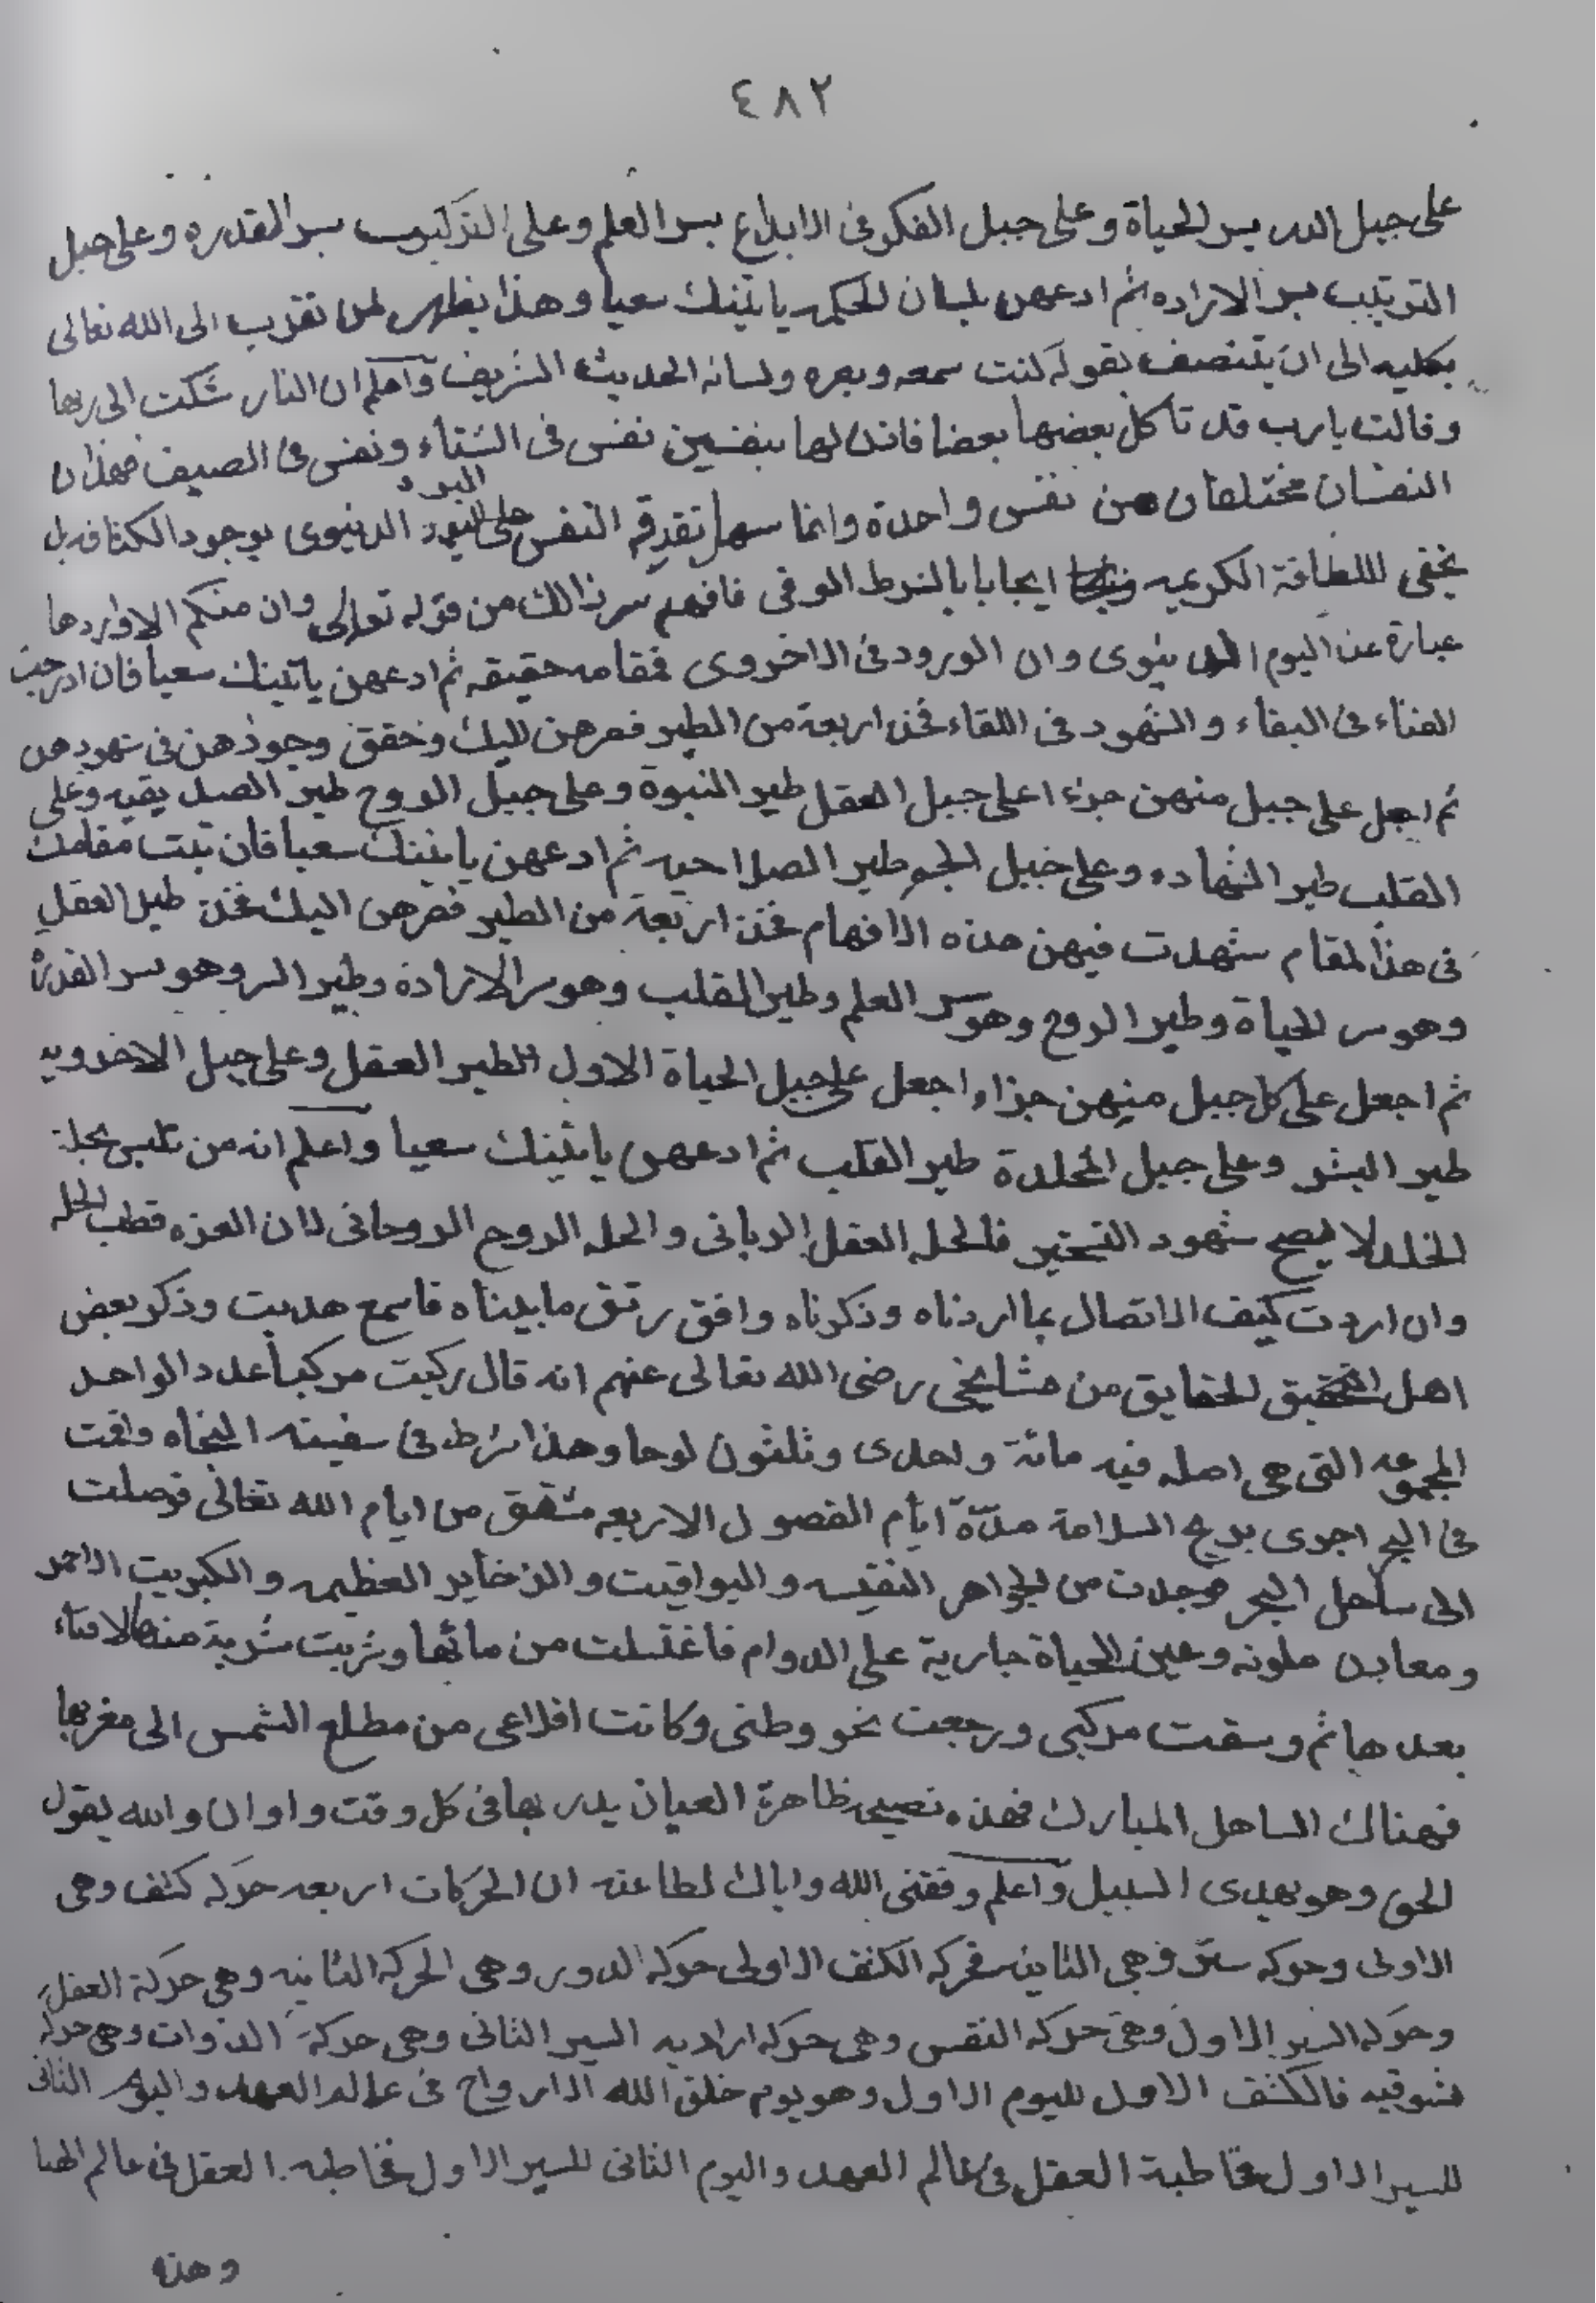 ٤٨٢
على جبل السر بسر الحياة وعلى جبل الفكر فى الابداع بسر العلم وعلى التركيب بسر القدره وعلى جبل
الترتيب بسر الاراده ثم ادعهن بلسان الحكمه ياتينك سعيا وهذا يظهر لمن تقرب الى الله تعالى
بكليه الى ان يتصف بقوله كنت سمعه وبصره ولسانه الحديث الشريف واعلم ان النار شكت الى ربها
وقالت يارب قد تاكل بعضها بعضا فاذن لها بنفسين نفس فى الشتاء ونفس فى الصيف فهذان
النفسان مختلفان من نفس واحدة وانما سهل تفرقه النفس على البرد الدنيوى بوجود الكثافه بل
يخفى لللطافة الكريميه ايجابا بالشرط الموفى فافهم سر ذالك من قوله تعالى وان منكم الا واردها
عبارة عن اليوم الدنيوى وان الورود فى الاخروى فمقامه حقيقه ثم ادعهن ياتينك سعيا فان ادرجت
الفناء فى البقاء والشهود فى اللقاء فخذ اربعة من الطير فصرهن اليك وحقق وجودهن فى شهودهن
ثم اجعل على جبل منهن جزءا على جبل العقل طير النبوة وعلى جبل الروح طير الصديقيه وعلى
القلب طير الشهاده وعلى جبل الجسم طير الصلاحيه ثم ادعهن ياتينك سعيا فان ثبت مقامك
فى هذا المقام شهدت فيهن هذه الافهام فخذ اربعة من الطير فصرهن اليك فخذ طير العقل
وهو سر الحياة وطير الروح وهو سر العلم وطير القلب وهو سر الارادة وطير السر وهو سر القدرة
ثم اجعل على كل جبل منهن جزاء اجعل على جبل الحياة الاول الطير العقل وعلى جبل الاخرويه
طير البشر وعلى جبل المخلدة طير القلب ثم ادعهن ياتينك سعيا واعلم انه من تلبس بحلة
الخلد لا يصح شهود فالحله العقل الربانى والحله الروح الروحانى لان العزه قطب الحله
وان اردت كيف الاتصال بما اردناه وذكرناه وافق رتق ما بيناه فاسمع هديت وذكر بعض
اهل التحقيق الحقايق من مشايخى رضى الله تعالى عنهم انه قال ركبت مركبا عدد الواحد
المجموعه التى هى اصله فيه مائة واحدى وثلثون لوحا وهذا شرط فى سفينه النجاه واقت
فى البحر اجرى بريح السلامة مدّة ايام الفصول الاربعه مشقق من ايام الله تعالى فوصلت
الى ساحل البحر فوجدت من الجواهر النفيسه واليواقيت والذخاير العظيمه والكبريت الاحمر
ومعادن ملونه وعين الحياة جارية على الدوام فاغتسلت من مائها وشربت شربة منها لافناء
بعدها ثم وسقت مركبى ورجعت نحو وطنى وكانت اقلاعى من مطلع الشمس الى مغربها
فهناك الساحل المبارك فهذه نصيحه ظاهرة العيان يدر بها فى كل وقت واوان والله يقول
الحق وهو يهدى السبيل واعلم وفقنى الله واياك لطاعته ان الحركات اربعه حركه كشف وهى
الاولى وحركه ستر وهى الثانيه فحركه الكشف الاولى حركه الدور وهى الحركه الثانيه وهى حركة العقل
وحركه السير الاول وهى حركه النفس وهى حركه اراديه السير الثانى وهى حركة الذوات وهى حركه
شوقيه فالكشف الاول لليوم الاول وهو يوم خلق الله الارواح فى عالم العهد واليوم الثانى
للسير الاول مخاطبة العقل فى عالم العهد واليوم الثانى للسير الاول مخاطبه العقل فى عالم الهبا
وهذه